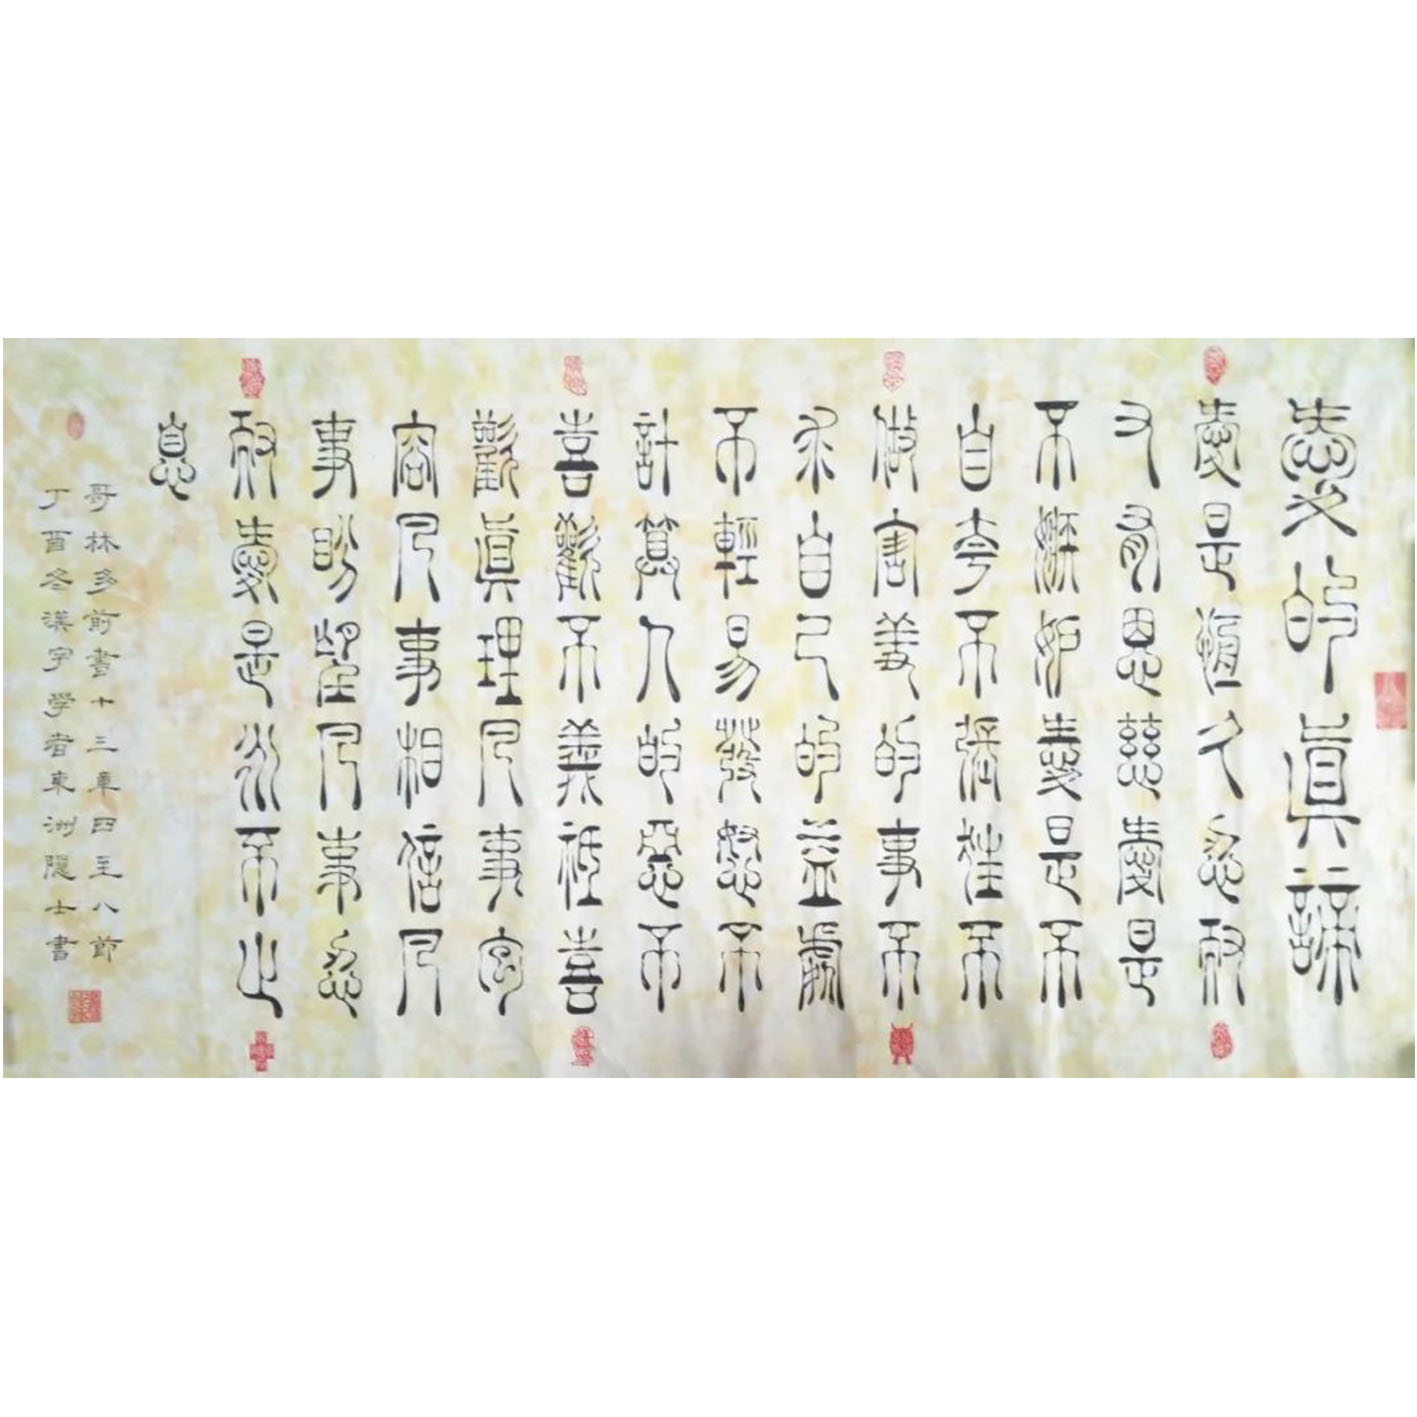 愛的眞諦
愛是恆久忍耐
又有恩慈愛是
不嫉妒愛是不
自夸不張狂不
做害羞的事不
求自己的益處
不輕易發怒不
計算人的惡不
喜歡不義祗喜
歡眞理凡事包
容凡事相信凡
事盼望凡事忍
耐愛是永不止
息
哥林多前書十三章四至八節
丁酉冬漢字學者東洲隱士書